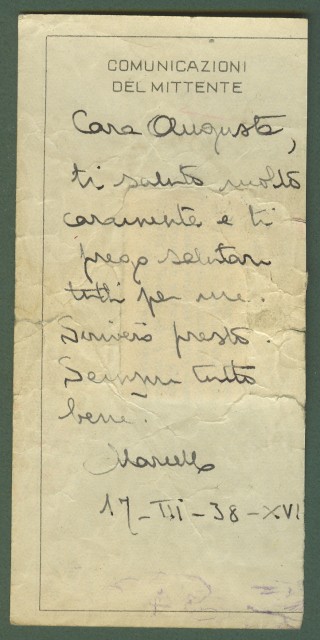 COMUNICAZIONI
DEL MITTENTE
Cara Augusta,
ti saluto molto
caramente e ti
prego salutari
tutti per me.
Scriverò presto.
Sempre tutto
bene.
Marcello
17-III-38-XVI